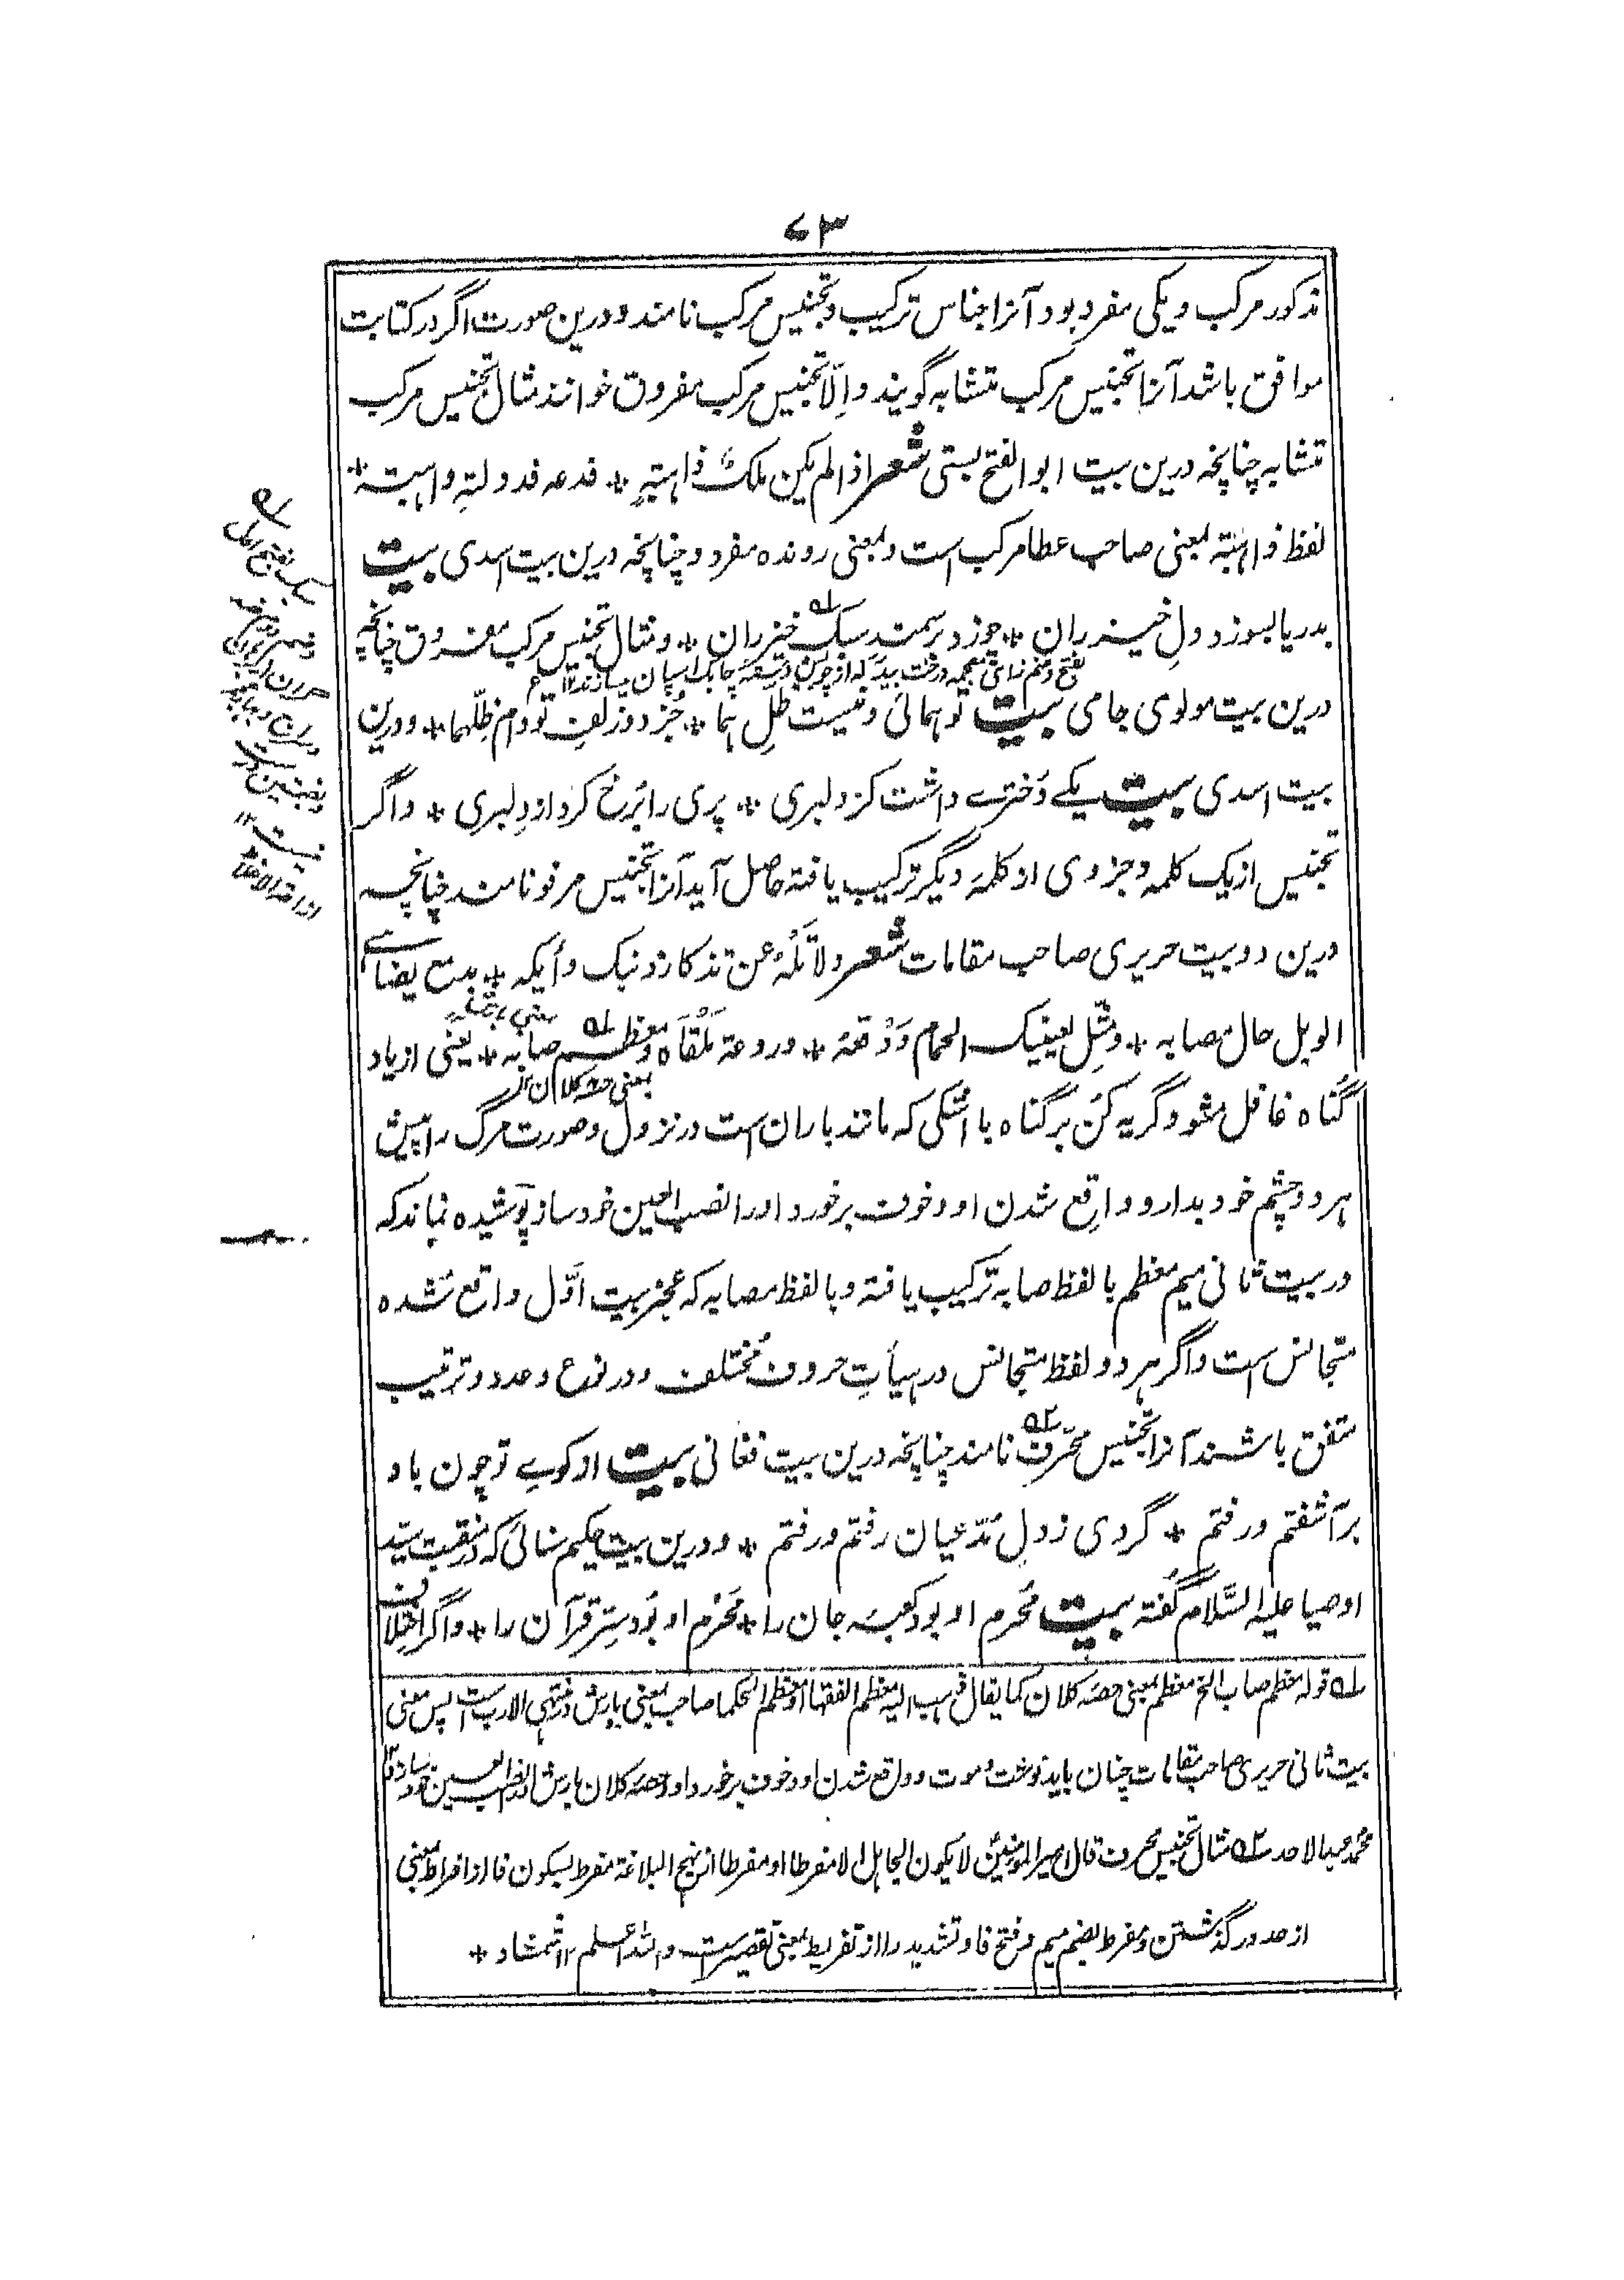 ۷۳
مذکور مرکب و یکی مفرد بود آنرا جناس ترکیب و تجنیس مرکب نامند و درین صورت اگر در کتابت
موافق باشد آنرا تجنیس مرکب متشابه گویند و اِلّا تجنیس مرکب مفروق خوانند مثال تجنیس مرکب
متشابه چنانچه درین بیت ابوالفتح بستی شعر اذا لم یکن ملکٌ ذاهبةٍ * فدعه فدولتهٗ ذاهبة *
لفظ ذاهبة بمعنی صاحب عطا مرکب است و بمعنی رونده مفرد و چنانچه درین بیت اسدی بیت
بدریا بسوزد دلِ خیزران * چو زد بر سمندِ سبک خیزران * و مثال تجنیس مرکب مفروق چنانچه
بفتح و ضم زای معجمه درخت بید که از چوبش دسته چابک اسپان میسازند ۱۲
درین بیت مولوی جامی بیت تو همائی و نیست ظلِ هما * جُز دو زلفِ تو دام ظِلّهما * و درین
بیت اسدی بیت یکے دخترے داشت کز دلبری * پری را برُخ کرد از دِل بری * و اگر
تجنیس از یک کلمه و جزوی از کلمهٔ دیگر ترکیب یافته حاصل آید آنرا تجنیس مرفو نامند چنانچه
درین دو بیت حریری صاحب مقامات شعر ولا تَلْهُ عن تذکار ذنبک وأبکه * بدمع یضاهے
الوبل حال مصابه * ومثِّل لعینیک الحمام وَوَقعَهُ * وروعة مَلْقاه ومطعم صابه * یعنی از یاد
بمعنی حصهٔ کلان ۱۲
گناه غافل مشو و گریه کن بر گناه با اشکی که مانند باران است در نزول و صورت مرگ را پیش
هر دو چشم خود بدار و واقع شدن او و خوف برخورد او را نصب العین خود ساز پوشیده نماند که
در بیت ثانی میم معظم با لفظ صابه ترکیب یافته و با لفظ مصابه که عجز بیت اوّل واقع شده
متجانس است و اگر هر دو لفظ متجانس در هیأتِ حروف مُختلف و در نوع و عدد و ترتیب
متفق باشند آنرا تجنیس محرّف نامند چنانچه درین بیت فغانی بیت از کوے تو چون باد
برآشفتم و رفتم * گردی ز دلِ مدّعیان رفتم و رفتم * و درین بیت حکیم سنائی که در منقبت سید
اوصیا علیه السّلام گفته بیت مُحرِم او بود کعبهٔ جان را * مَحْرَم او بُود سِرِّ قرآن را * و اگر اختلاف
۱ه قوله معظم صاب الخ معظم بمعنی حصهٔ کلان کما یقال ذهب الیه معظم الفقها او معظم الحکما صاب بمعنی بارش در منتهی الارب است پس معنی
بیت ثانی حریری صاحب مقامات چنان باید نوشت موت و واقع شدن او و خوف برخورد او و حصهٔ کلان بارش او نصب العین خود ساز ۱۲
محمد عبدالاحد ۲ه مثال تجنیس محرف قال امیرالمؤمنین لا یکون الجاهل الا مفرطا او مفرطا از نهج البلاغة مفرط بسکون فا از افراط بمعنی
از حد در گذشتن و مفرط بضم میم و فتح فا و تشدید را از تفریط بمعنی تقصیر است والله اعلم ۱۲ شمشاد *